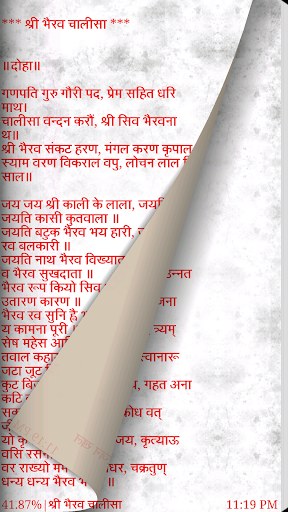 *** श्री भैरव चालीसा ***
॥दोहा॥
गणपति गुरु गौरी पद, प्रेम सहित धरि
माथ।
चालीसा वन्दन करौं, श्री सिव भैरवना
थ॥
श्री भैरव संकट हरण, मंगल करण कृपाल
स्याम वरण विकराल वपु, लोचन लाल
साल॥
जय जय श्री काली के लाला, जयति
जयति कासी कुतवाला ॥
जयति बटुक भैरव भय हारी,
रव बलकारी ॥
जयति नाथ भैरव विख्यात
व भैरव सुखदाता ॥ उन्नत
भैरव रूप कियो सिव
उतारण कारण ॥ जना
भैरव रव सुनि
य कामना पूरी ॥ त्र्यम्
सेष महेस
तवाल कहा
जटा जूट
कुट गहत अना
कटि
क्रोध वत्
जी
जय, कृत्याऊ
वसि
वर राख्यो धर, चक्रतुण्
धन्य धन्य भैरव
41.87% | श्री भैरव चालीसा 11:19 PM